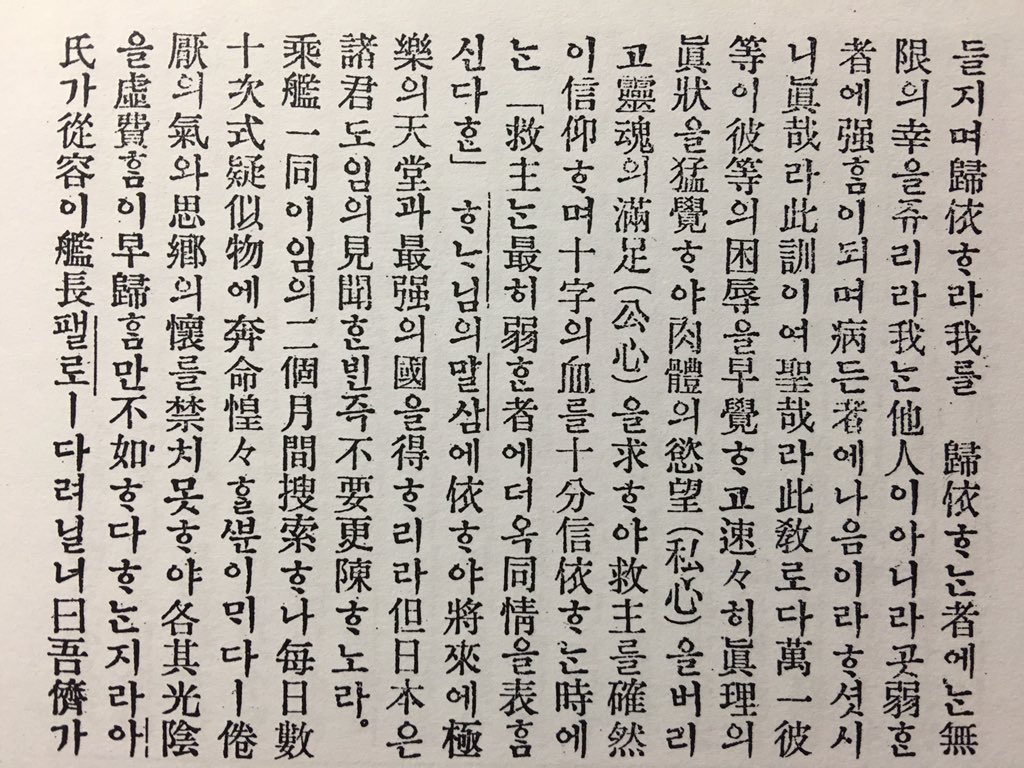 들지며歸依ᄒᆞ라我를 歸依ᄒᆞᄂᆞᆫ者에ᄂᆞᆫ無
限의幸을쥬리라我ᄂᆞᆫ他人이아니라곳弱ᄒᆞᆫ
者에强ᄒᆞᆷ이되며病든者에나음이라ᄒᆞ셧시
니眞哉라此訓이여聖哉라此敎로다萬一彼
等이彼等의困辱을早覺ᄒᆞ고速々히眞理의
眞狀을猛覺ᄒᆞ야肉體의慾望(私心)을버리
고靈魂의滿足(公心)을求ᄒᆞ야救主를確然
이信仰ᄒᆞ며十字의血를十分信依ᄒᆞᄂᆞᆫ時에
ᄂᆞᆫ「救主ᄂᆞᆫ最히弱ᄒᆞᆫ者에더옥同情을表ᄒᆞᆷ
신다ᄒᆞᆫ」ᄒᆞᄂᆞ님의말삼에依ᄒᆞ야將來에極
樂의天堂과最强의國을得ᄒᆞ리라但日本은
諸君도임의見聞ᄒᆞᆫ빈즉不要更陳ᄒᆞ노라。
乘艦一同이임의二個月間搜索ᄒᆞ나每日數
十次式疑似物에奔命惶々ᄒᆞᆯᄲᅮᆫ이ᄆᆡ다ㅣ倦
厭의氣와思鄕의懷를禁치못ᄒᆞ야各其光陰
을虛費ᄒᆞᆷ이早歸ᄒᆞᆷ만不如ᄒᆞ다ᄒᆞᄂᆞᆫ지라아
氏가從容이艦長팰로ㅣ다려닐너曰吾儕가